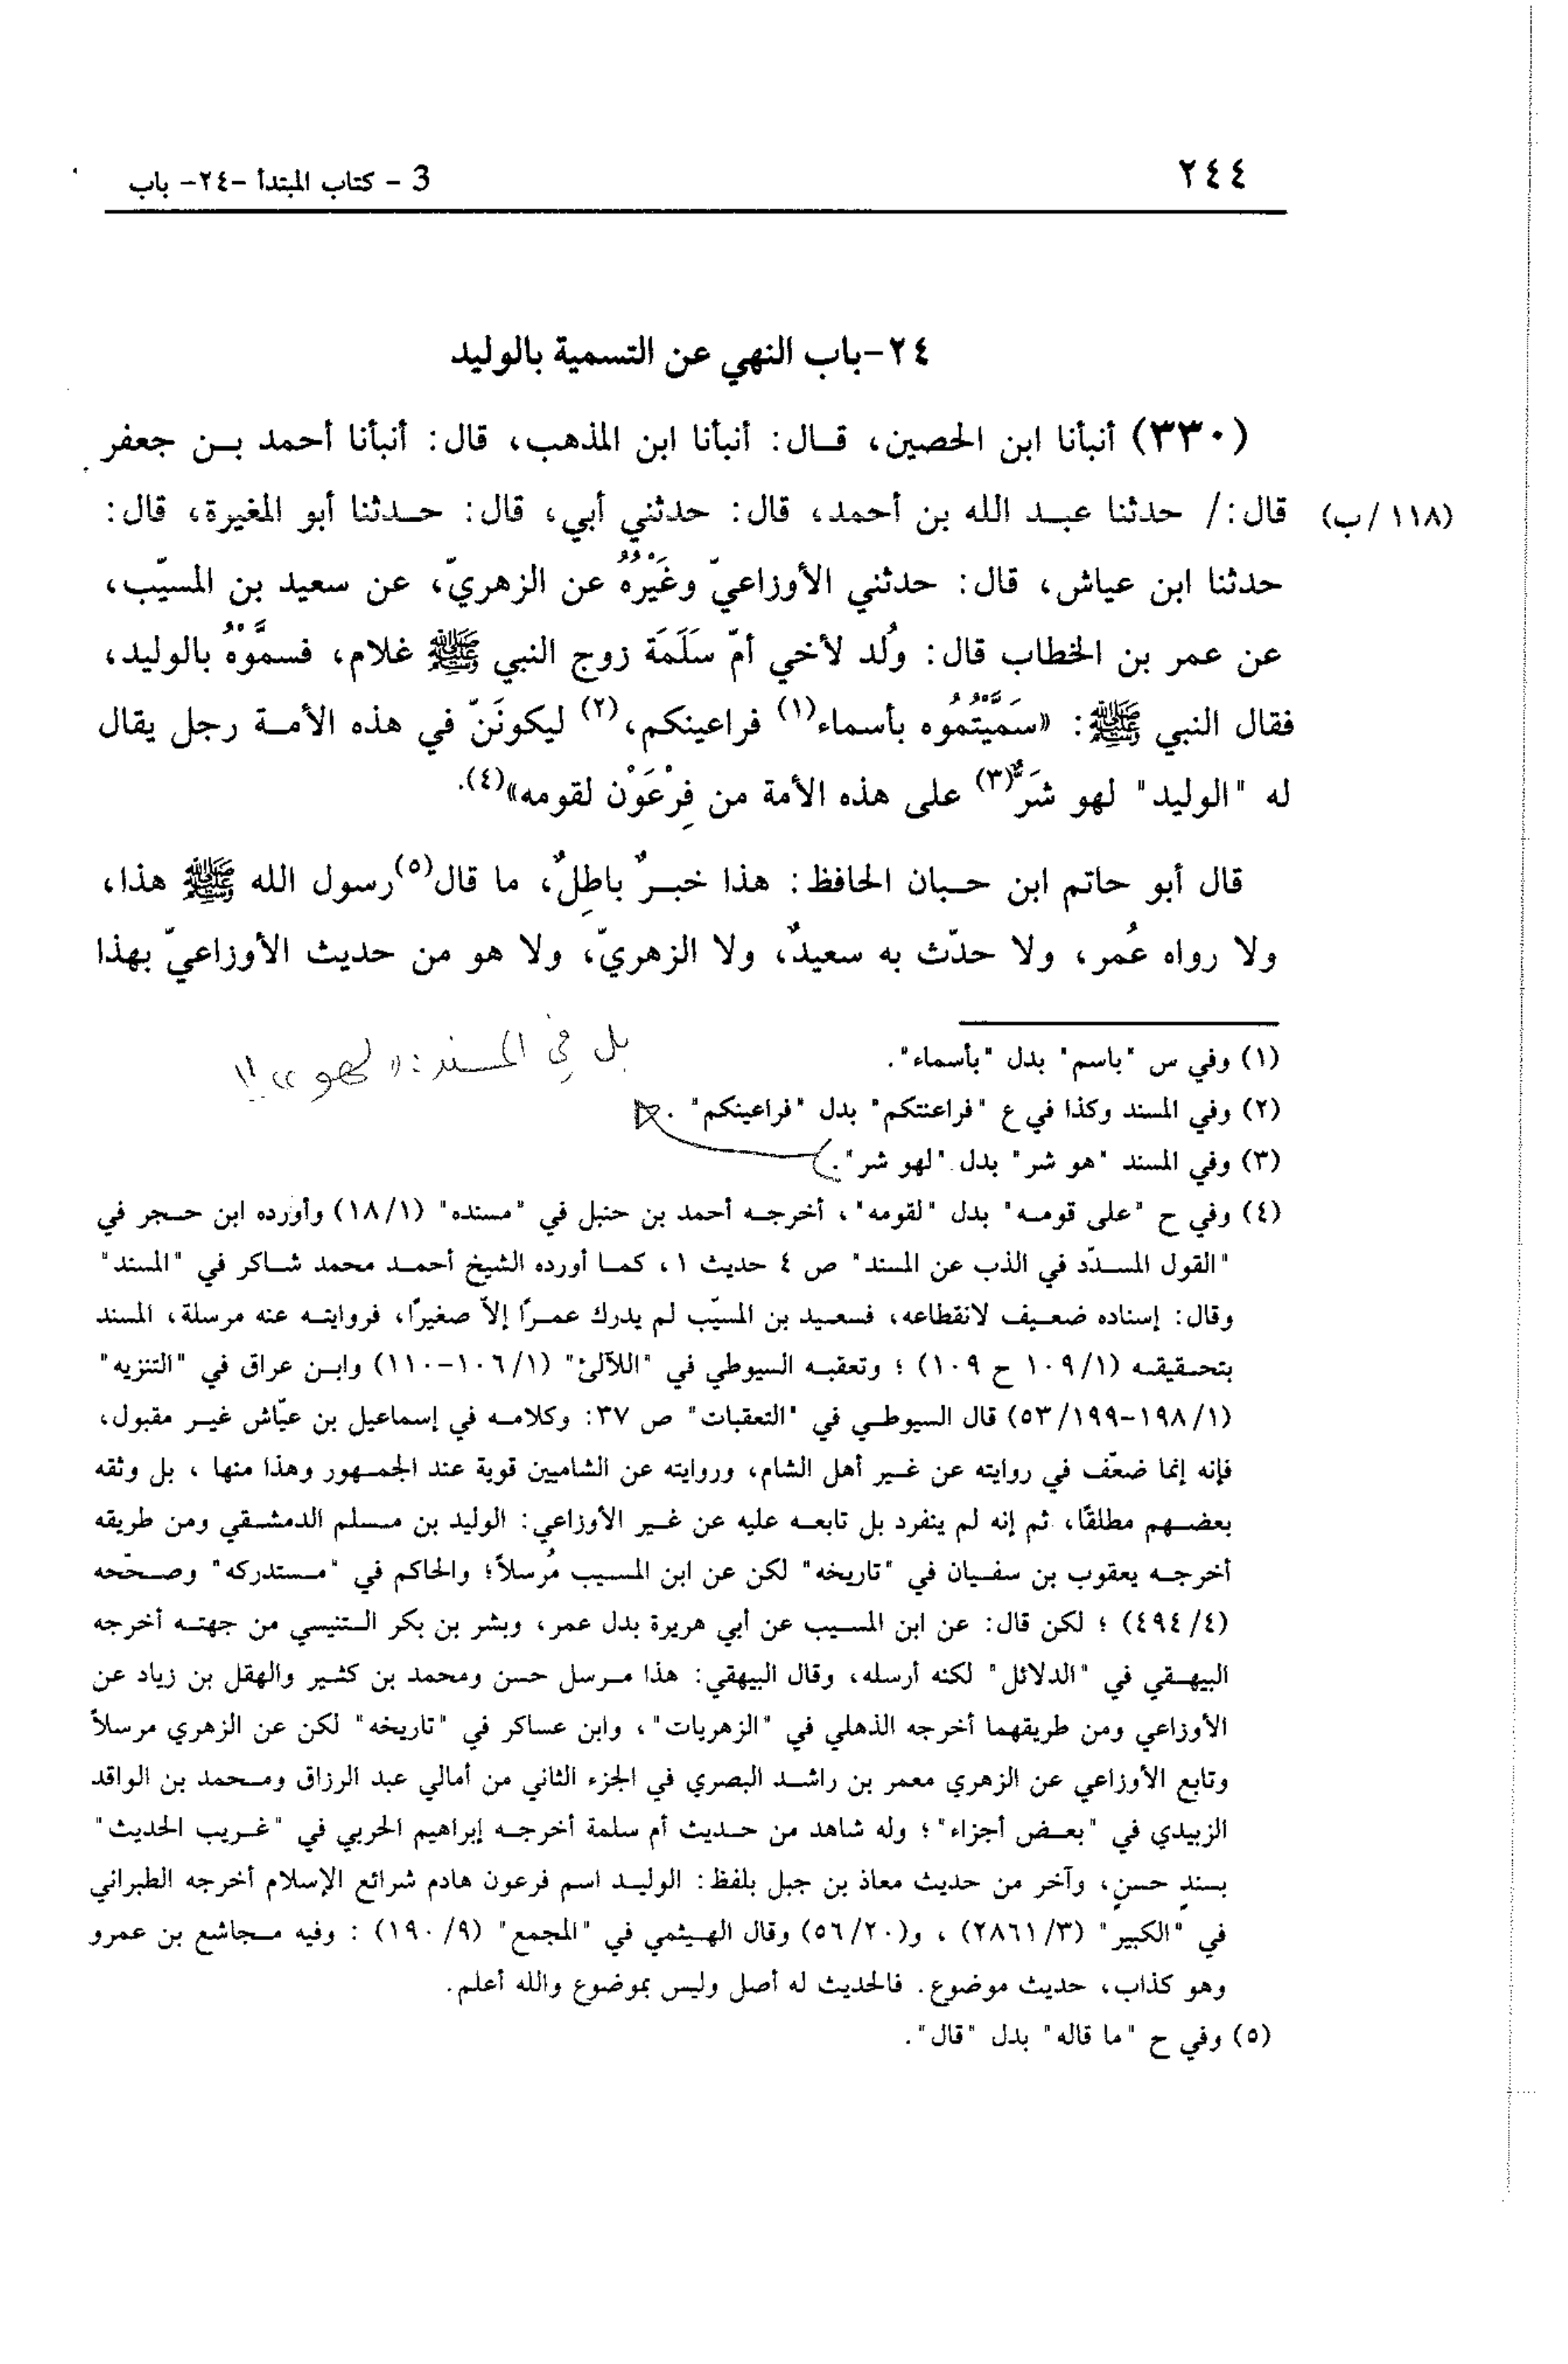 ٢٤٤
3 - كتاب المبتدأ -٢٤- باب
٢٤-باب النهي عن التسمية بالوليد
(٣٣٠) أنبأنا ابن الحصين، قـال: أنبأنا ابن المذهب، قال: أنبأنا أحمد بـن جعفر
(١١٨/ب) قال:/ حدثنا عبـد الله بن أحمد، قال: حدثني أبي، قال: حـدثنا أبو المغيرة، قال:
حدثنا ابن عياش، قال: حدثني الأوزاعيّ وغَيْرُهُ عن الزهريّ، عن سعيد بن المسيّب،
عن عمر بن الخطاب قال: وُلد لأخي أمّ سَلَمَة زوج النبي ﷺ غلام، فسمَّوْهُ بالوليد،
فقال النبي ﷺ: «سَمَّيْتُمُوه بأسماء(١) فراعينكم،(٢) ليكونَنّ في هذه الأمـة رجل يقال
له "الوليد" لهو شَرٌّ(٣) على هذه الأمة من فِرْعَوْن لقومه»(٤).
قال أبو حاتم ابن حـبان الحافظ: هذا خبـرٌ باطِلٌ، ما قال(٥)رسول الله ﷺ هذا،
ولا رواه عُمر، ولا حدّث به سعيدٌ، ولا الزهريّ، ولا هو من حديث الأوزاعيّ بهذا
بل في المسند: «لهو»!!
(١) وفي س "باسم" بدل "بأسماء".
(٢) وفي المسند وكذا في ع "فراعنتكم" بدل "فراعينكم".
(٣) وفي المسند "هو شر" بدل "لهو شر".
(٤) وفي ح "على قومـه" بدل "لقومه"، أخرجـه أحمد بن حنبل في "مسنده" (١٨/١) وأورده ابن حـجر في
"القول المسـدّد في الذب عن المسند" ص ٤ حديث ١، كمـا أورده الشيخ أحمـد محمد شـاكر في "المسند"
وقال: إسناده ضعـيف لانقطاعه، فسعـيد بن المسيّب لم يدرك عمـرًا إلاّ صغيرًا، فروايتـه عنه مرسلة، المسند
بتحـقيقـه (١٠٩/١ ح ١٠٩) ؛ وتعقبـه السيوطي في "اللآلئ" (١٠٦/١-١١٠) وابـن عراق في "التنزيه"
(١٩٨/١-٥٣/١٩٩) قال السيوطـي في "التعقبات" ص ٣٧: وكلامـه في إسماعيل بن عيّاش غيـر مقبول،
فإنه إنما ضعّف في روايته عن غـير أهل الشام، وروايته عن الشاميين قوية عند الجمـهور وهذا منها ، بل وثقه
بعضـهم مطلقًا، ثم إنه لم ينفرد بل تابعـه عليه عن غـير الأوزاعي: الوليد بن مـسلم الدمشـقي ومن طريقه
أخرجـه يعقوب بن سفـيان في "تاريخه" لكن عن ابن المسـيب مُرسلاً؛ والحاكم في "مـستدركه" وصـحّحه
(٤/ ٤٩٤) ؛ لكن قال: عن ابن المسـيب عن أبي هريرة بدل عمر، وبشر بن بكر الـتنيسي من جهتـه أخرجه
البيهـقي في "الدلائل" لكنه أرسله، وقال البيهقي: هذا مـرسل حسن ومحمد بن كثـير والهقل بن زياد عن
الأوزاعي ومن طريقهما أخرجه الذهلي في "الزهريات"، وابن عساكر في "تاريخه" لكن عن الزهري مرسلاً
وتابع الأوزاعي عن الزهري معمر بن راشـد البصري في الجزء الثاني من أمالي عبد الرزاق ومـحمد بن الواقد
الزبيدي في "بعـض أجزاء"؛ وله شاهد من حـديث أم سلمة أخرجـه إبراهيم الحربي في "غـريب الحديث"
بسندٍ حسنٍ، وآخر من حديث معاذ بن جبل بلفظ: الوليـد اسم فرعون هادم شرائع الإسلام أخرجه الطبراني
في "الكبير" (٢٨٦١/٣) ، و(٥٦/٢٠) وقال الهـيثمي في "المجمع" (١٩٠/٩) : وفيه مـجاشع بن عمرو
وهو كذاب، حديث موضوع. فالحديث له أصل وليس بموضوع والله أعلم.
(٥) وفي ح "ما قاله" بدل "قال".